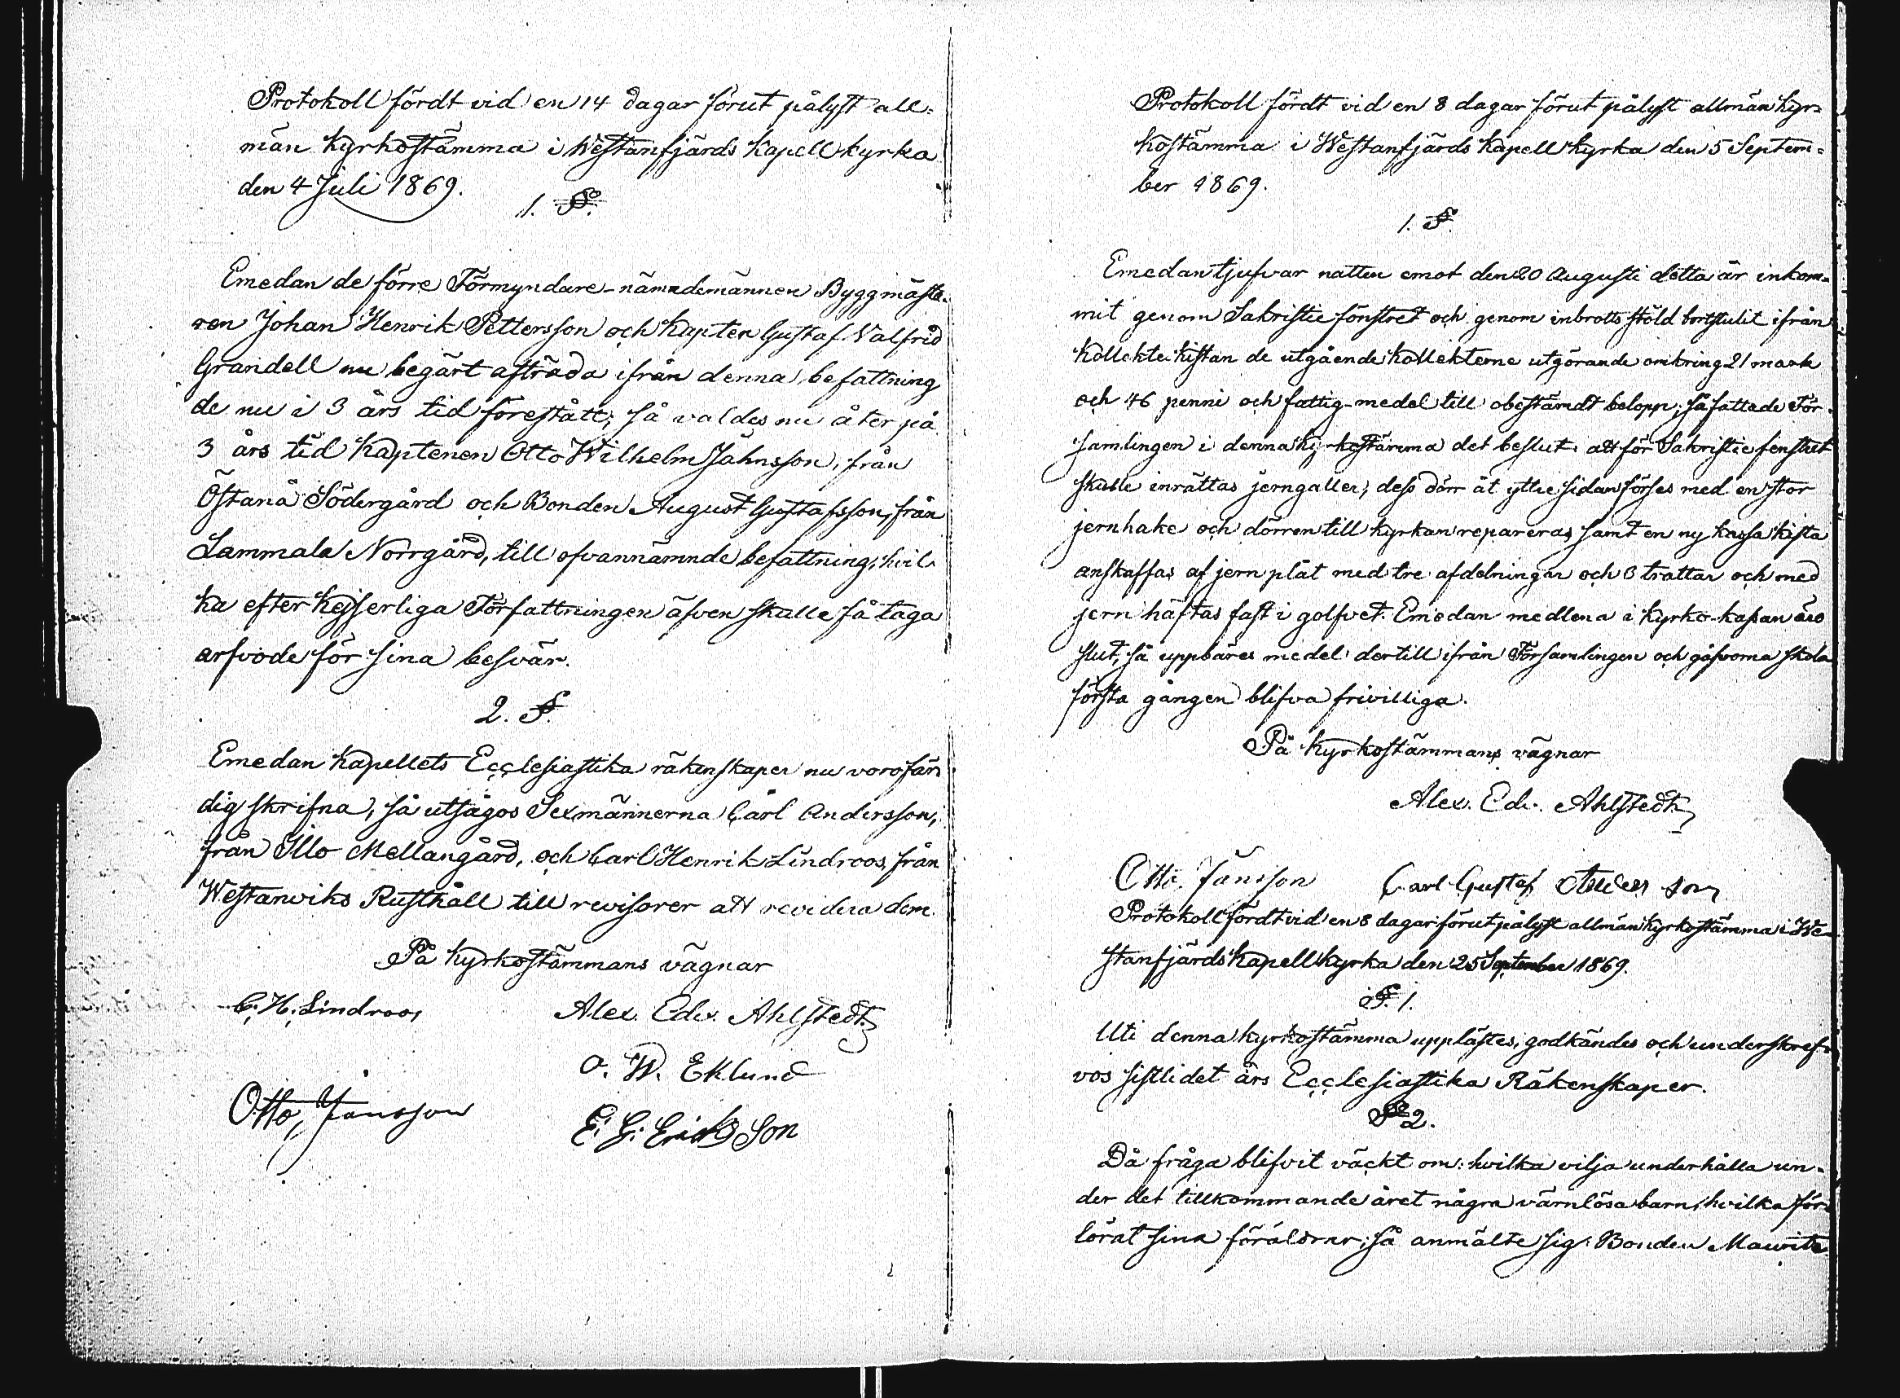 Protokoll fördt vid en 14 dagar förut pålyst all-
män kyrkostämma i Westanfjärds Kapell kyrka
den 4 Juli 1869.
1. §.
Emedan de förre Förmyndare-nämndemännen Byggmäste-
ren Johan Henrik Pettersson och Kapten Gustaf Valfrid
Grandell nu begärt afträda ifrån denna befattning
de nu i 3 års tid förestått; så valdes nu åter på
3 års tid Kaptenen Otto Wilhelm Jahnsson, från
Östanå Södergård och Bonden August Gustafsson, från
Lammala Norrgård, till ofvannämnde befattning, hvil-
ka efter Kejserliga Författningen äfven skulle få taga
arfvode för sina besvär.
2. §.
Emedan Kapellets Ecclesiastika räkenskaper nu voro fär-
dig skrifna, så utsågos Sexmännerna Carl Andersson,
från Illo Mellangård, och Carl Henrik Lindroos, från
Westanviks Rusthåll till revisorer att revidera dem.
På kyrkostämmans vägnar
C. H. Lindroos
Alex. Edv. Ahlstedt.
O. W. Eklund
Otto Jansson
E. G. Eriksson
Protokoll fördt vid en 8 dagar förut pålyst allmän kyr-
kostämma i Westanfjärds Kapell kyrka den 5 Septem-
ber 1869.
1. §.
Emedan tjufvar natten emot den 20 Augusti detta år inkom-
mit genom Sakristie fönstret och genom inbrotts stöld bortstulit ifrån
Kollekte kistan de utgående kollekterne utgörande omkring 21 mark
och 46 penni och fattig-medel till obestämdt belopp; så fattade För-
samlingen i denna ky-kostämma det beslut att för Sakristie fenstret
skulle inrättas jerngaller, dess dörr åt yttre sidan förses med en stor
jernhake och dörren till kyrkan repareras samt en ny kassa kista
anskaffas af jern plåt med tre afdelningar och 3 trattar och med
jern häftas fast i golfvet. Emedan medlena i kyrko-kassan äro
slut, så uppbäres medel dertill ifrån Församlingen och gåfvorna skola
första gången blifva frivilliga.
På kyrkostämmans vägnar
Alex. Edv. Ahlstedt
Otto Jansson Carl Gustaf Andersson
Protokoll fördt vid en 8 dagar förut pålyst allmän kyrkostämma i We-
stanfjärds Kapell kyrka den 25 September 1869.
§. 1.
Uti denna kyrkostämma upplästes, godkändes och underskref-
vos sistlidet års Ecclesiastika Räkenskaper.
§ 2.
Då fråga blifvit väckt om: hvilka vilja underhålla un-
der det tillkommande året några värnlösa barn, hvilka för-
lorat sina föräldrar; så anmälte sig: Bonden Maurits